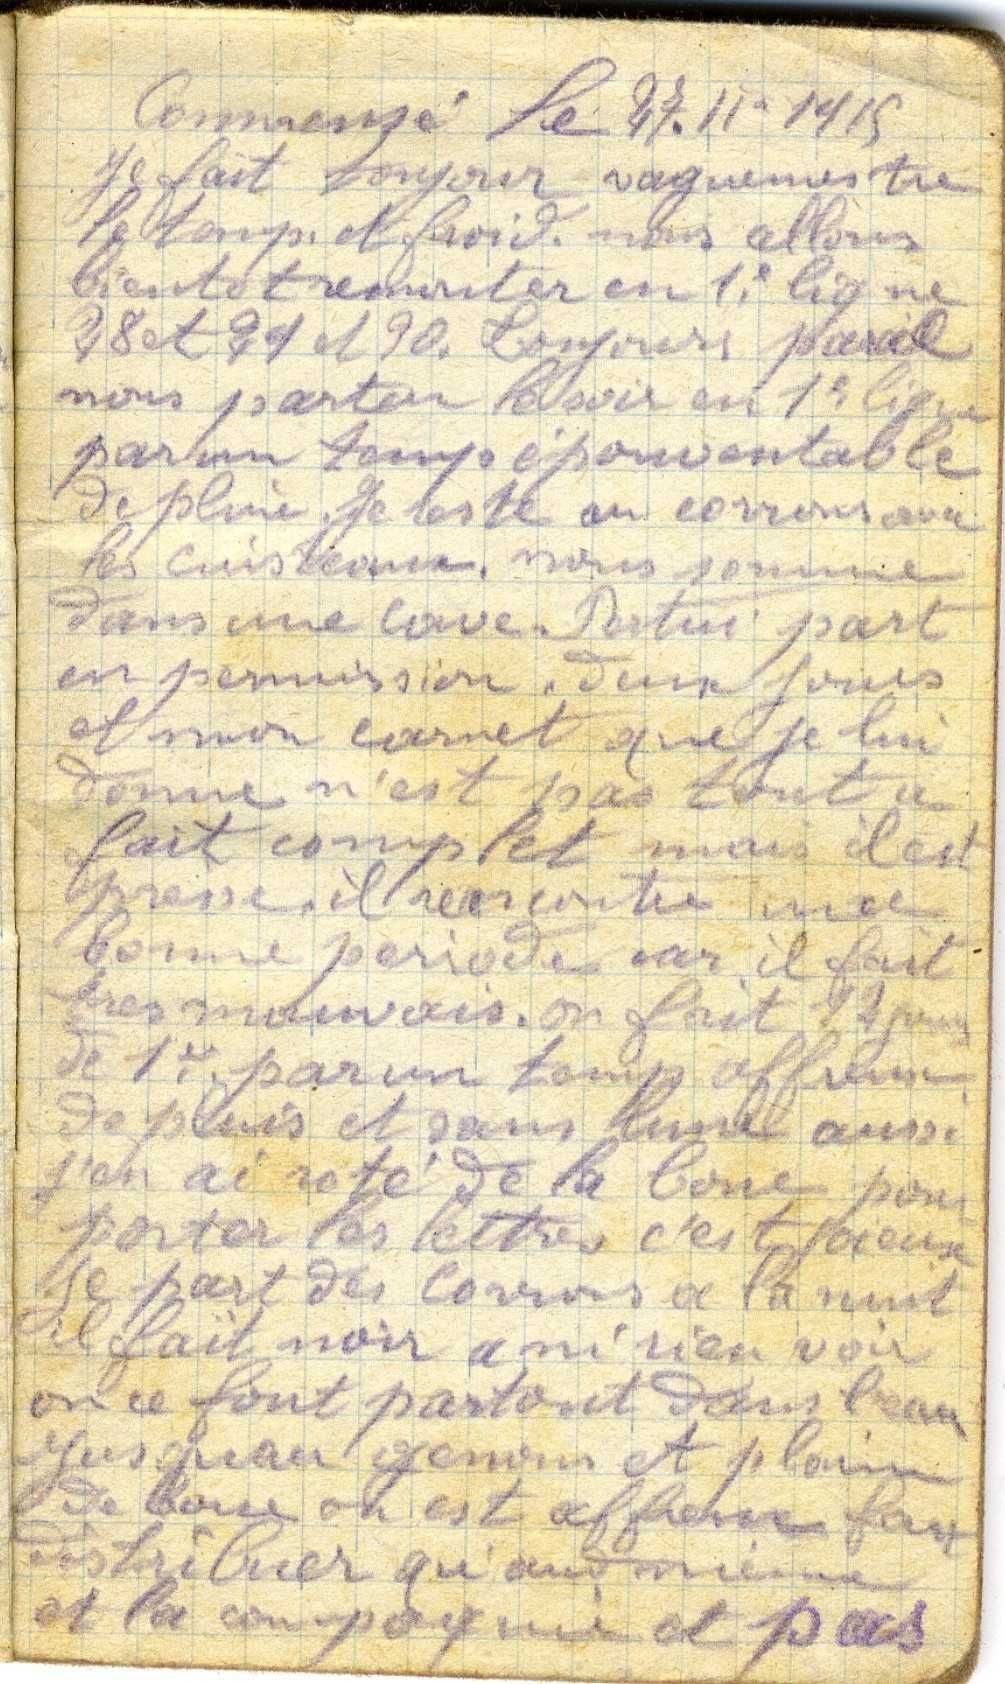 Commensé le 27. 11 - 1915
Je fait toujour vaguemestre
le temp. et froid. nous allons
bientot remonter en 1e ligne
28 et 29 et 30. toujours pareil
nous parton le soir en 1e ligne
par un temp épouventable
de pluie. Je reste au corrons avec
les cuisteaux. nous somme
dans une cave. Pertui part
en permission. deux jours
et mon carnet que je lui
donne n'est pas tout a
fait complet mais il est
presse. il rencontre une
bonne periode car il fait
tres mauvais. on fait 12 jours
de 1er par un temp affreux
de pluis et sans lune aussi
j'en ai roté de la boue pour
porter les lettres c'est
Je part des corrons a la nuit
il fait noir a ni rien voir
on ce fout partout dans l'eau
jusquau genoux et plain
de boue on est affreux faut
distribuer qu'and meme
et la compagnie et pas